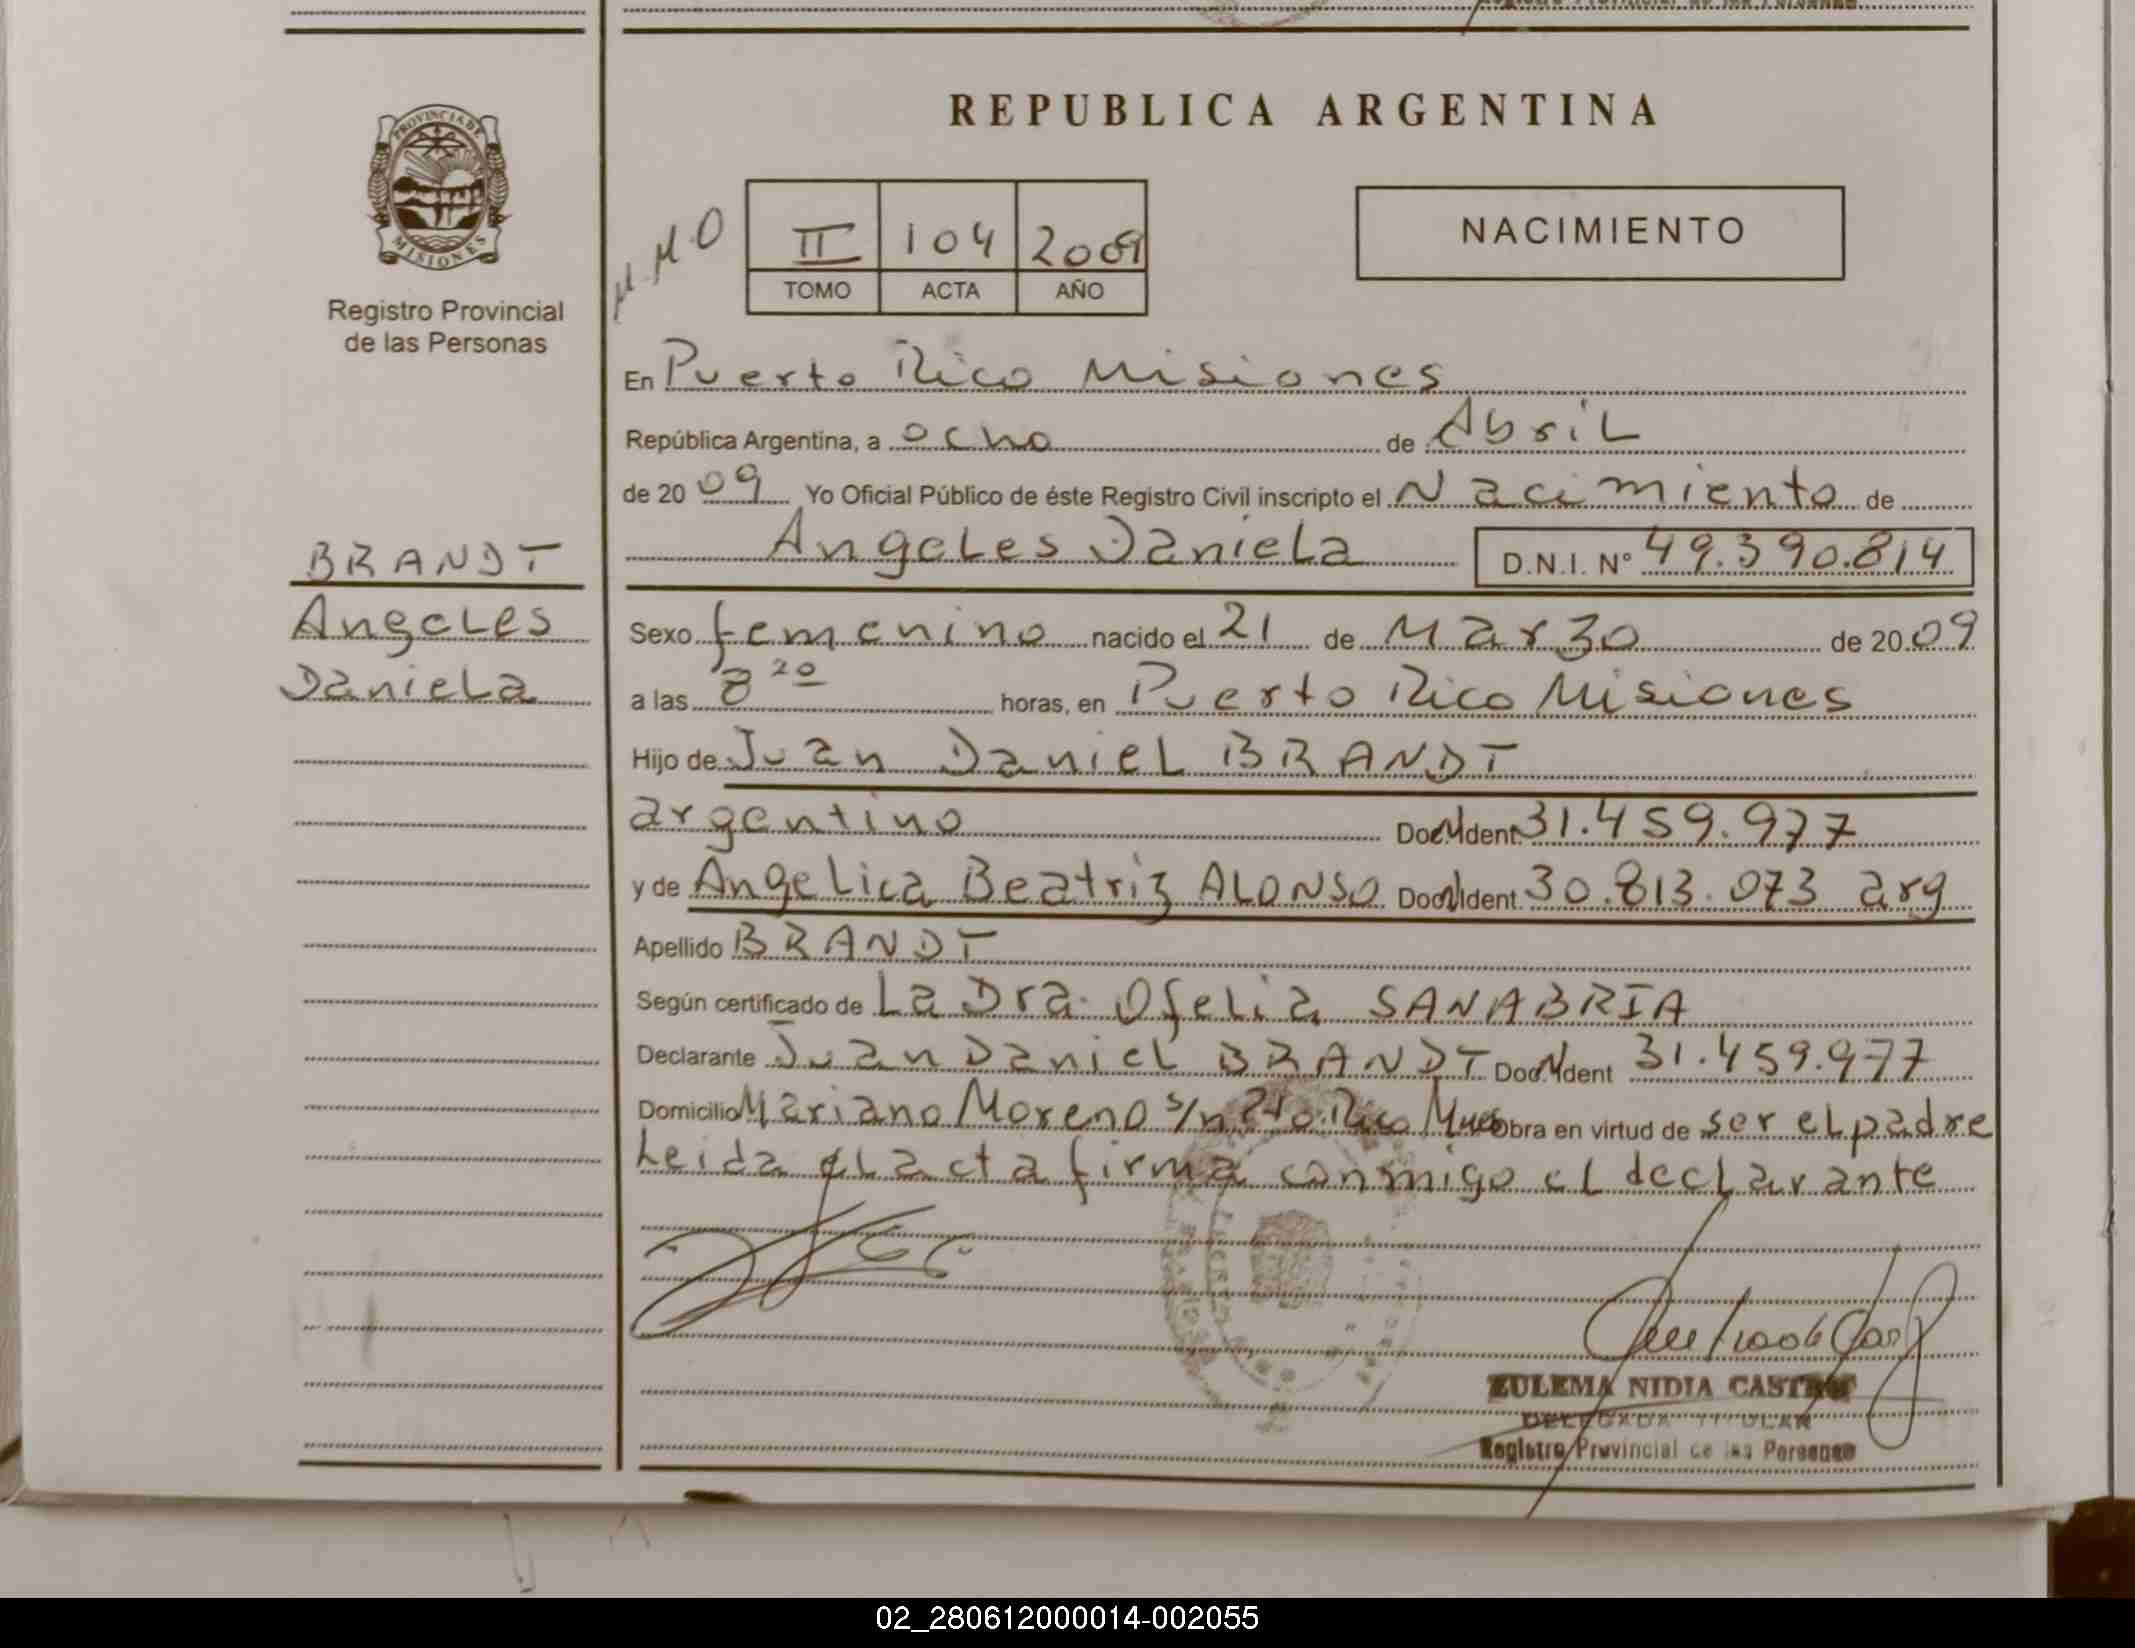 REPUBLICA ARGENTINA
PROVINCIA DE
MISIONES
Registro Provincial
de las Personas
II 104 2009
TOMO ACTA AÑO
NACIMIENTO
En Puerto Rico Misiones
República Argentina, a ocho de Abril
de 20 09 Yo Oficial Público de éste Registro Civil inscripto el Nacimiento de
Angeles Daniela D.N.I. Nº 49.390.814
BRANDT
Angeles
Daniela
Sexo femenino nacido el 21 de Marzo de 20 09
a las 8 20 horas, en Puerto Rico Misiones
Hijo de Juan Daniel BRANDT
argentino Doc. Ident. 31.459.977
y de Angelica Beatriz ALONSO Doc. Ident. 30.813.073 arg
Apellido BRANDT
Según certificado de La Dra. Ofelia SANABRIA
Declarante Juan Daniel BRANDT Doc. Ident 31.459.977
Domicilio Mariano Moreno s/n Pto. Rico Mnes Obra en virtud de ser el padre
Leida el acta firma conmigo el declarante
ZULEMA NIDIA CASTRO
DELEGADA TITULAR
Registro Provincial de las Personas
02_280612000014-002055